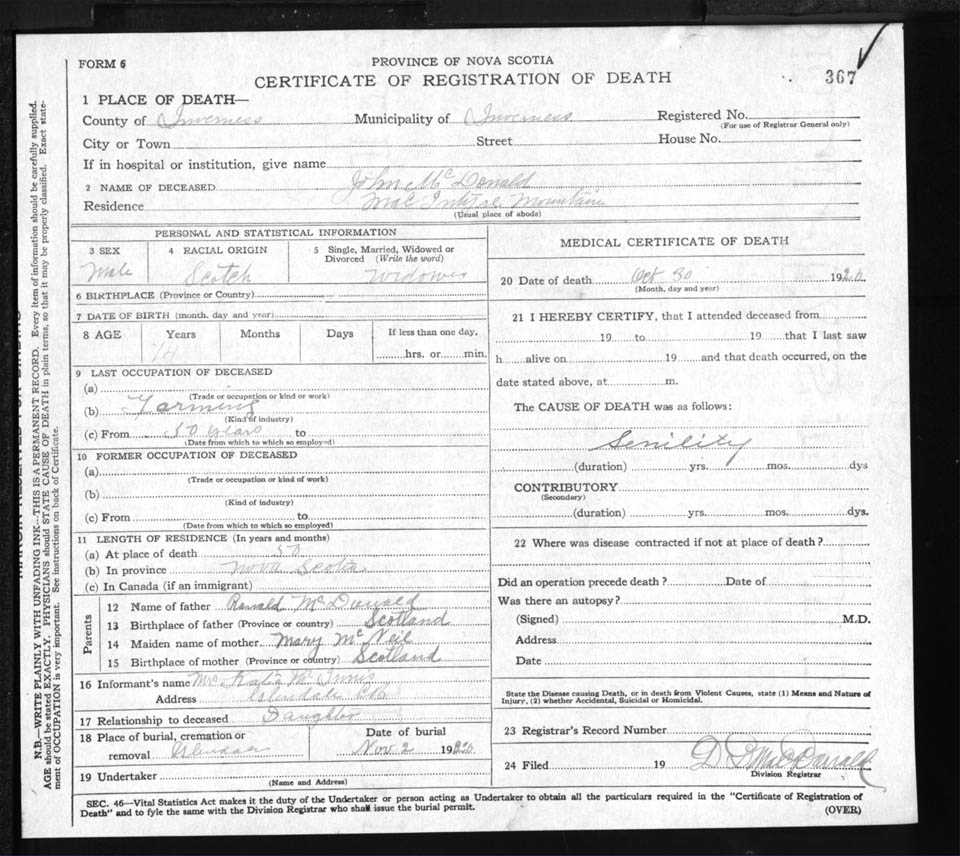 FORM 6
PROVINCE OF NOVA SCOTIA
CERTIFICATE OF REGISTRATION OF DEATH
367
1 PLACE OF DEATH—
County of Inverness Municipality of Inverness Registered No.
(For use of Registrar General only)
City or Town Street House No.
If in hospital or institution, give name
2 NAME OF DECEASED John Mc Donald
Residence Mac Intyre Mountain
(Usual place of abode)
PERSONAL AND STATISTICAL INFORMATION
3 SEX 4 RACIAL ORIGIN 5 Single, Married, Widowed or Divorced (Write the word)
Male Scotch Widower
6 BIRTHPLACE (Province or Country)
7 DATE OF BIRTH (month, day and year)
8 AGE Years Months Days If less than one day,
hrs. or min.
9 LAST OCCUPATION OF DECEASED
(a)
(Trade or occupation or kind or work)
(b) Farming
(Kind of industry)
(c) From 50 years to
(Date from which to which so employed)
10 FORMER OCCUPATION OF DECEASED
(a)
(Trade or occupation or kind of work)
(b)
(Kind of industry)
(c) From to
(Date from which to which so employed)
11 LENGTH OF RESIDENCE (In years and months)
(a) At place of death 50
(b) In province Nova Scotia
(c) In Canada (if an immigrant)
Parents
12 Name of father Ronald McDonald
13 Birthplace of father (Province or country) Scotland
14 Maiden name of mother Mary Mc Neil
15 Birthplace of mother (Province or country) Scotland
16 Informant's name Mrs Katie Mc Innis
Address Glendale
17 Relationship to deceased Daughter
18 Place of burial, cremation or Date of burial
removal Glendale Nov 2 1920
19 Undertaker
(Name and Address)
MEDICAL CERTIFICATE OF DEATH
20 Date of death Oct 30 1920
(Month, day and year)
21 I HEREBY CERTIFY, that I attended deceased from
19 to 19 that I last saw
h alive on 19 and that death occurred, on the
date stated above, at m.
The CAUSE OF DEATH was as follows:
Senility
(duration) yrs. mos. dys
CONTRIBUTORY
(Secondary)
(duration) yrs. mos. dys.
22 Where was disease contracted if not at place of death?
Did an operation precede death? Date of
Was there an autopsy?
(Signed) M.D.
Address
Date
State the Disease causing Death, or in death from Violent Causes, state (1) Means and Nature of
Injury, (2) whether Accidental, Suicidal or Homicidal.
23 Registrar's Record Number
24 Filed 19 MacDonald
Division Registrar
SEC. 46—Vital Statistics Act makes it the duty of the Undertaker or person acting as Undertaker to obtain all the particulars required in the "Certificate of Registration of
Death" and to fyle the same with the Division Registrar who shall issue the burial permit. (OVER)
N.B.—WRITE PLAINLY WITH UNFADING INK—THIS IS A PERMANENT RECORD. Every item of information should be carefully supplied.
AGE should be stated EXACTLY. PHYSICIANS should STATE CAUSE OF DEATH in plain terms, so that it may be properly classified. Exact state-
ment of OCCUPATION is very important. See instructions on back of Certificate.